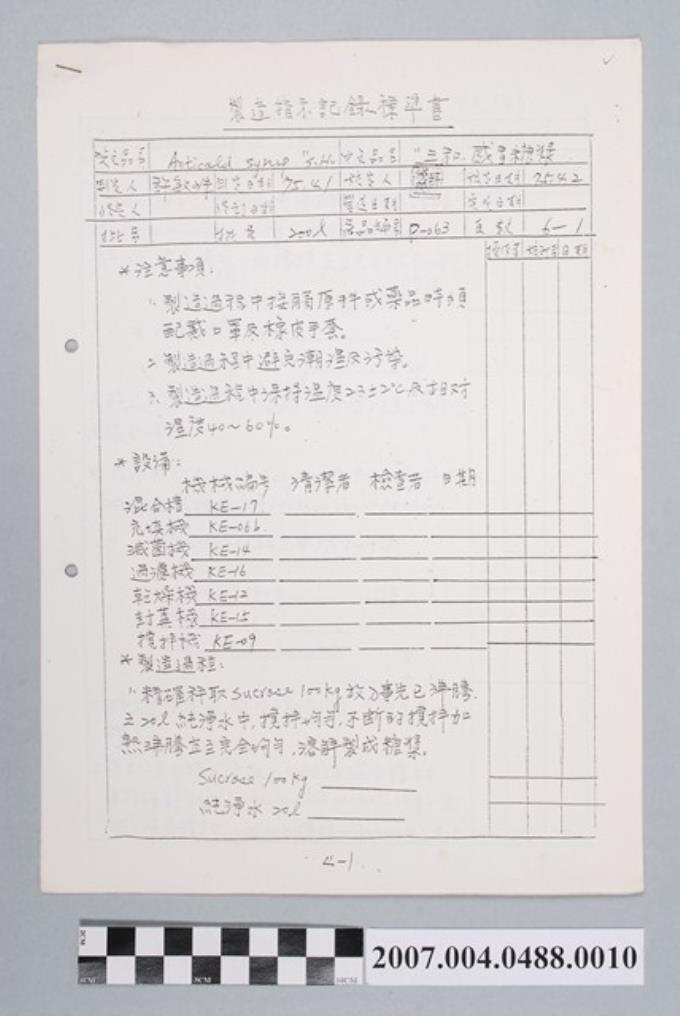 製造指示記錄標準書
英文品名 Anticold syrup "S.H." 中文品名 "三和"感冒糖漿
制定人 制定日期 75.4.1 核定人 核定日期 75.4.2
修定人 修定日期 製造日期 完成日期
批號 批量 200l 產品編號 P-063 頁數 6-1
操作者 檢查者 日期
*注意事項:
1. 製造過程中接觸原料或藥品時須
配戴口罩及橡皮手套。
2. 製造過程中避免潮濕及污染。
3. 製造過程中保持溫度23±2℃及相對
濕度40~60%。
*設備:
機械編號 清潔者 檢查者 日期
混合槽 KE-17
充填機 KE-06b
滅菌機 KE-14
過濾機 KE-16
乾燥機 KE-12
封蓋機 KE-15
攪拌機 KE-09
*製造過程:
1. 精確秤取 Sucrose 100kg 放入事先已沸騰
之20l 純淨水中,攪拌均勻,不斷的攪拌加
熱沸騰直至完全均勻,溶解製成糖漿。
Sucrose 100kg
純淨水 20l
4-1
2CM
0CM 5CM 10CM
2007.004.0488.0010